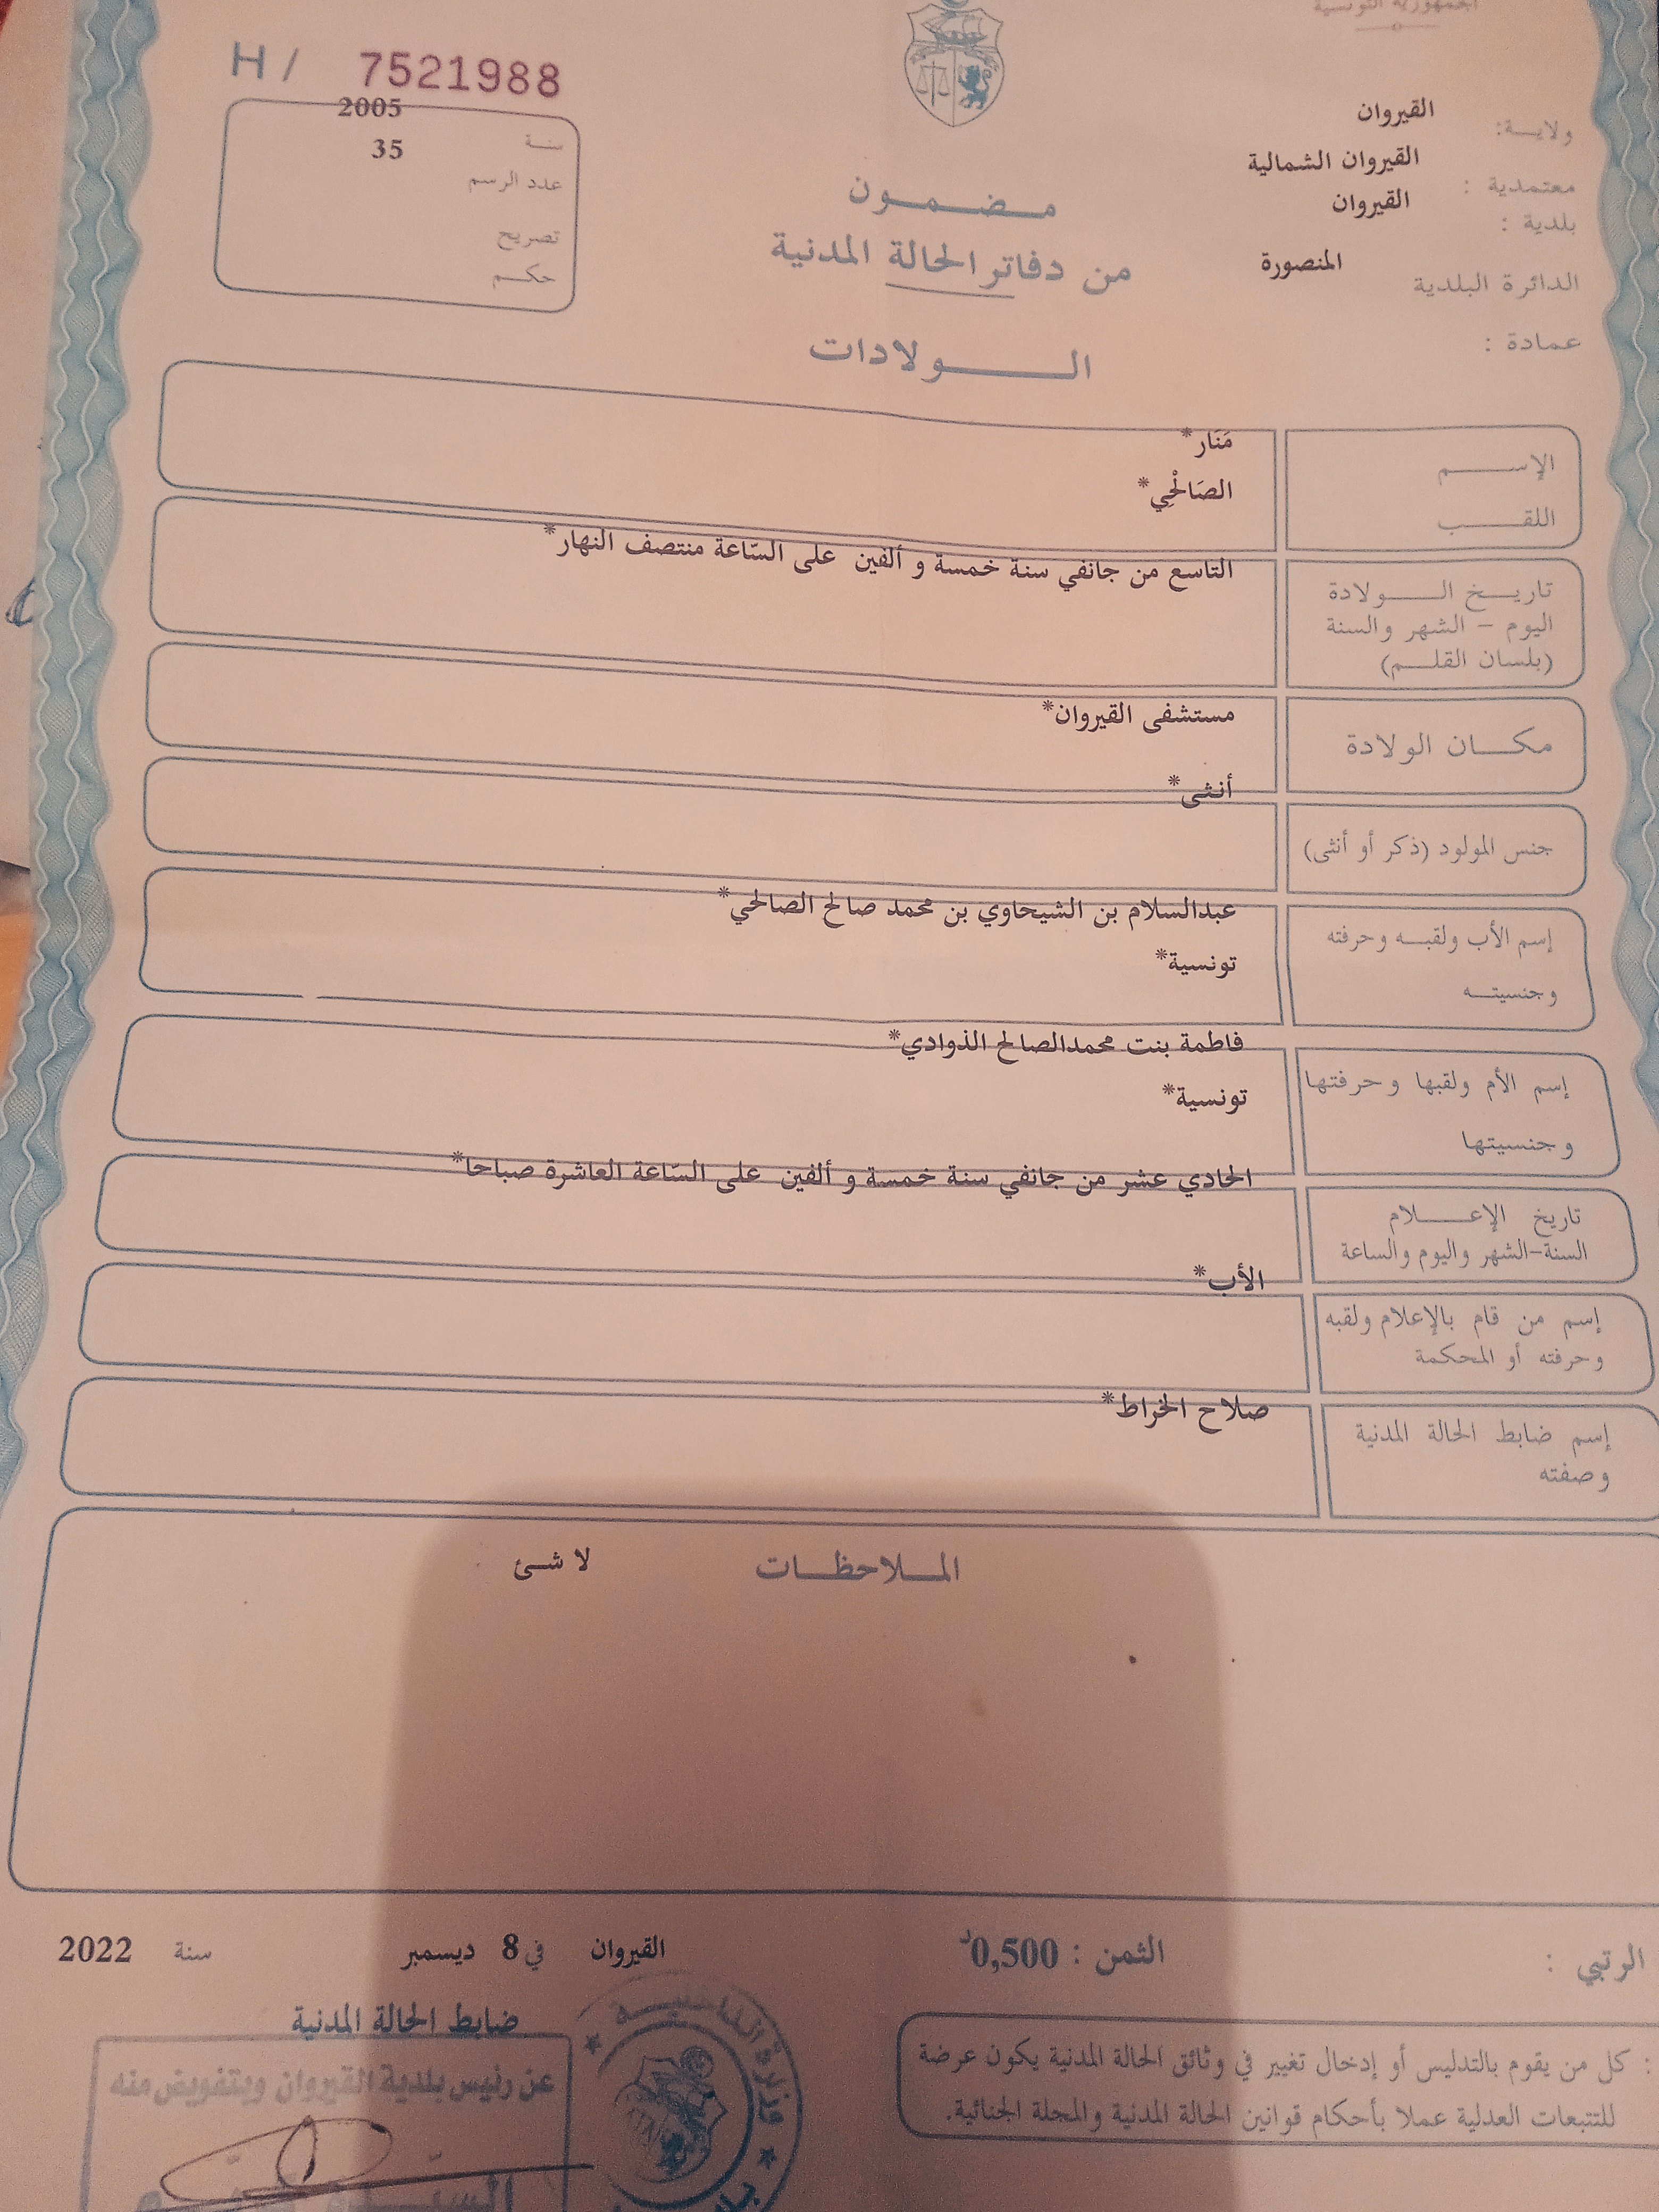 الجمهورية التونسية
H / 7521988
ولايـــة: القيروان
معتمدية : القيروان الشمالية
بلدية : القيروان
الدائرة البلدية المنصورة
عمادة :
2005
سنــة
35
عدد الرسم
تصريح
حكــم
مــضــمــون
من دفاتر الحالة المدنية
الــــولادات
الإســـــم مَنَار*
اللقــــب الصَالْحِي*
تاريــخ الــــولادة التاسع من جانفي سنة خمسة و ألفين على السّاعة منتصف النهار*
اليوم – الشهر والسنة
(بلسان القلــم)
مكـــان الولادة مستشفى القيروان*
جنس المولود (ذكر أو أنثى) أنثى*
إسم الأب ولقبــه وحرفته عبدالسلام بن الشيحاوي بن محمد صالح الصالحي*
وجنسيتــه تونسية*
إسم الأم ولقبها وحرفتها فاطمة بنت محمدالصالح الذوادي*
وجنسيتها تونسية*
تاريخ الإعــــلام الحادي عشر من جانفي سنة خمسة و ألفين على السّاعة العاشرة صباحا*
السنة-الشهر واليوم والساعة
إسم من قام بالإعلام ولقبه الأب*
وحرفته أو المحكمة
إسم ضابط الحالة المدنية صلاح الخراط*
وصفته
المــلاحظــات لا شئ
الرتبي : الثمن : 0,500د
القيروان في 8 ديسمبر سنة 2022
ضابط الحالة المدنية
عن رئيس بلدية القيروان وبتفويض منه
: كل من يقوم بالتدليس أو إدخال تغيير في وثائق الحالة المدنية يكون عرضة
للتتبعات العدلية عملا بأحكام قوانين الحالة المدنية والمجلة الجنائية.